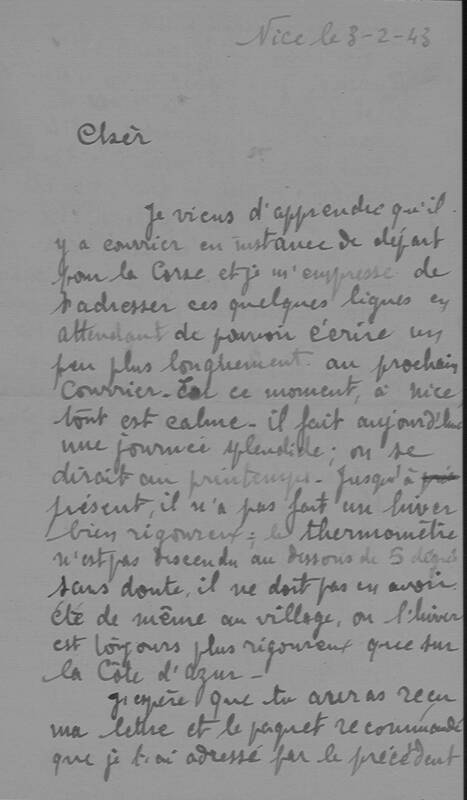 Nice le 3-2-43
Chèr
Je viens d'apprendre qu'il
y a courrier en instance de départ
pour la Corse et je m'empresse de
t'adresser ces quelques lignes en
attendant de pouvoir t'écrire un
peu plus longuement au prochain
Courrier - En ce moment, à Nice,
tout est calme - il fait aujourd'hui
une journée splendide ; on se
dirait au printemps - Jusqu'à
présent, il n'a pas fait un hiver
bien rigoureux ; le thermomètre
n'est pas descendu au dessous de 5 degrés
sans doute, il ne doit pas en avoir
été de même au village, ou l'hiver
est toujours plus rigoureux que sur
la Côte d'Azur -
J'espère que tu auras reçu
ma lettre et le paquet recommandé
que je t'ai adressé par le précédent